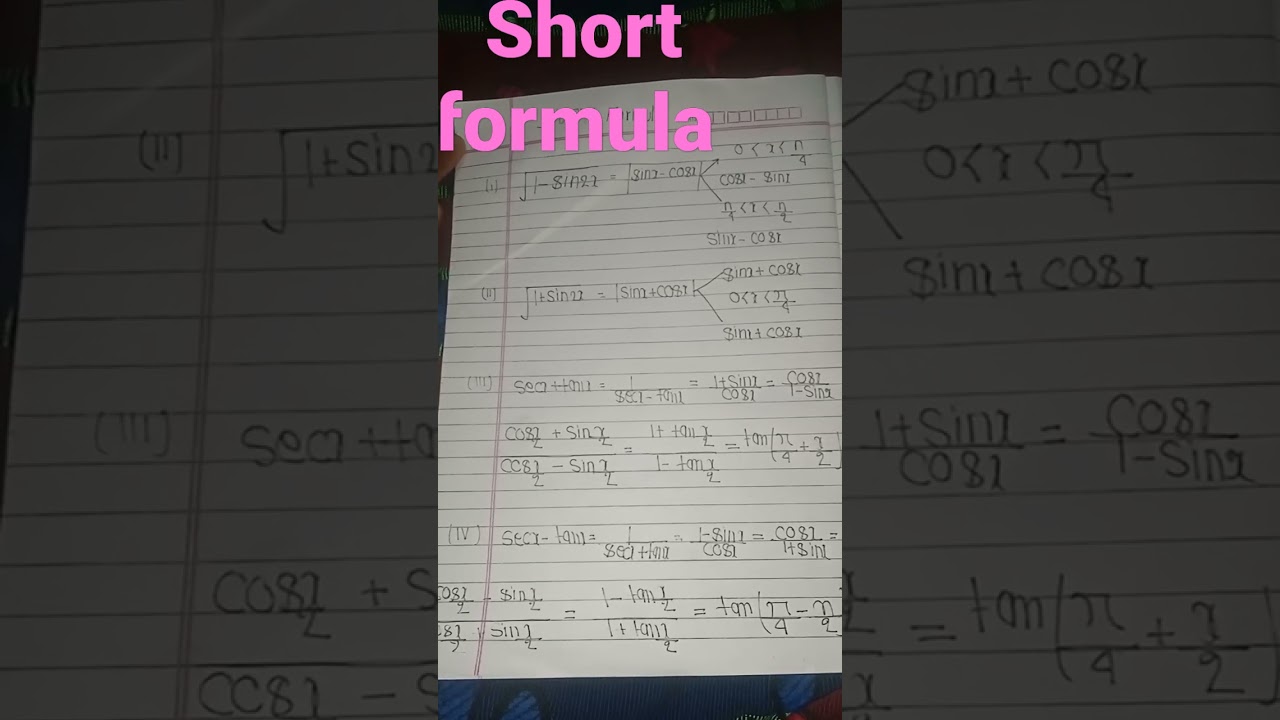 Short
formula
(I) √1-sin2x = |sinx-cosx| 0<x<π/4
cosx - sinx
π/4<x<π/2
sinx-cosx
(II) √1+sin2x = |sinx+cosx| sinx+cosx
0<x<π/4
sinx+cosx
(III) secx+tanx = 1/secx-tanx = 1+sinx/cosx = cosx/1-sinx
cosx/2 + sinx/2 / cosx/2 - sinx/2 = 1+tanx/2 / 1-tanx/2 = tan(π/4+x/2)
(IV) secx-tanx = 1/secx+tanx = 1-sinx/cosx = cosx/1+sinx =
cosx/2 - sinx/2 / sinx/2 = 1-tanx/2 / 1+tanx/2 = tan(π/4-π/2